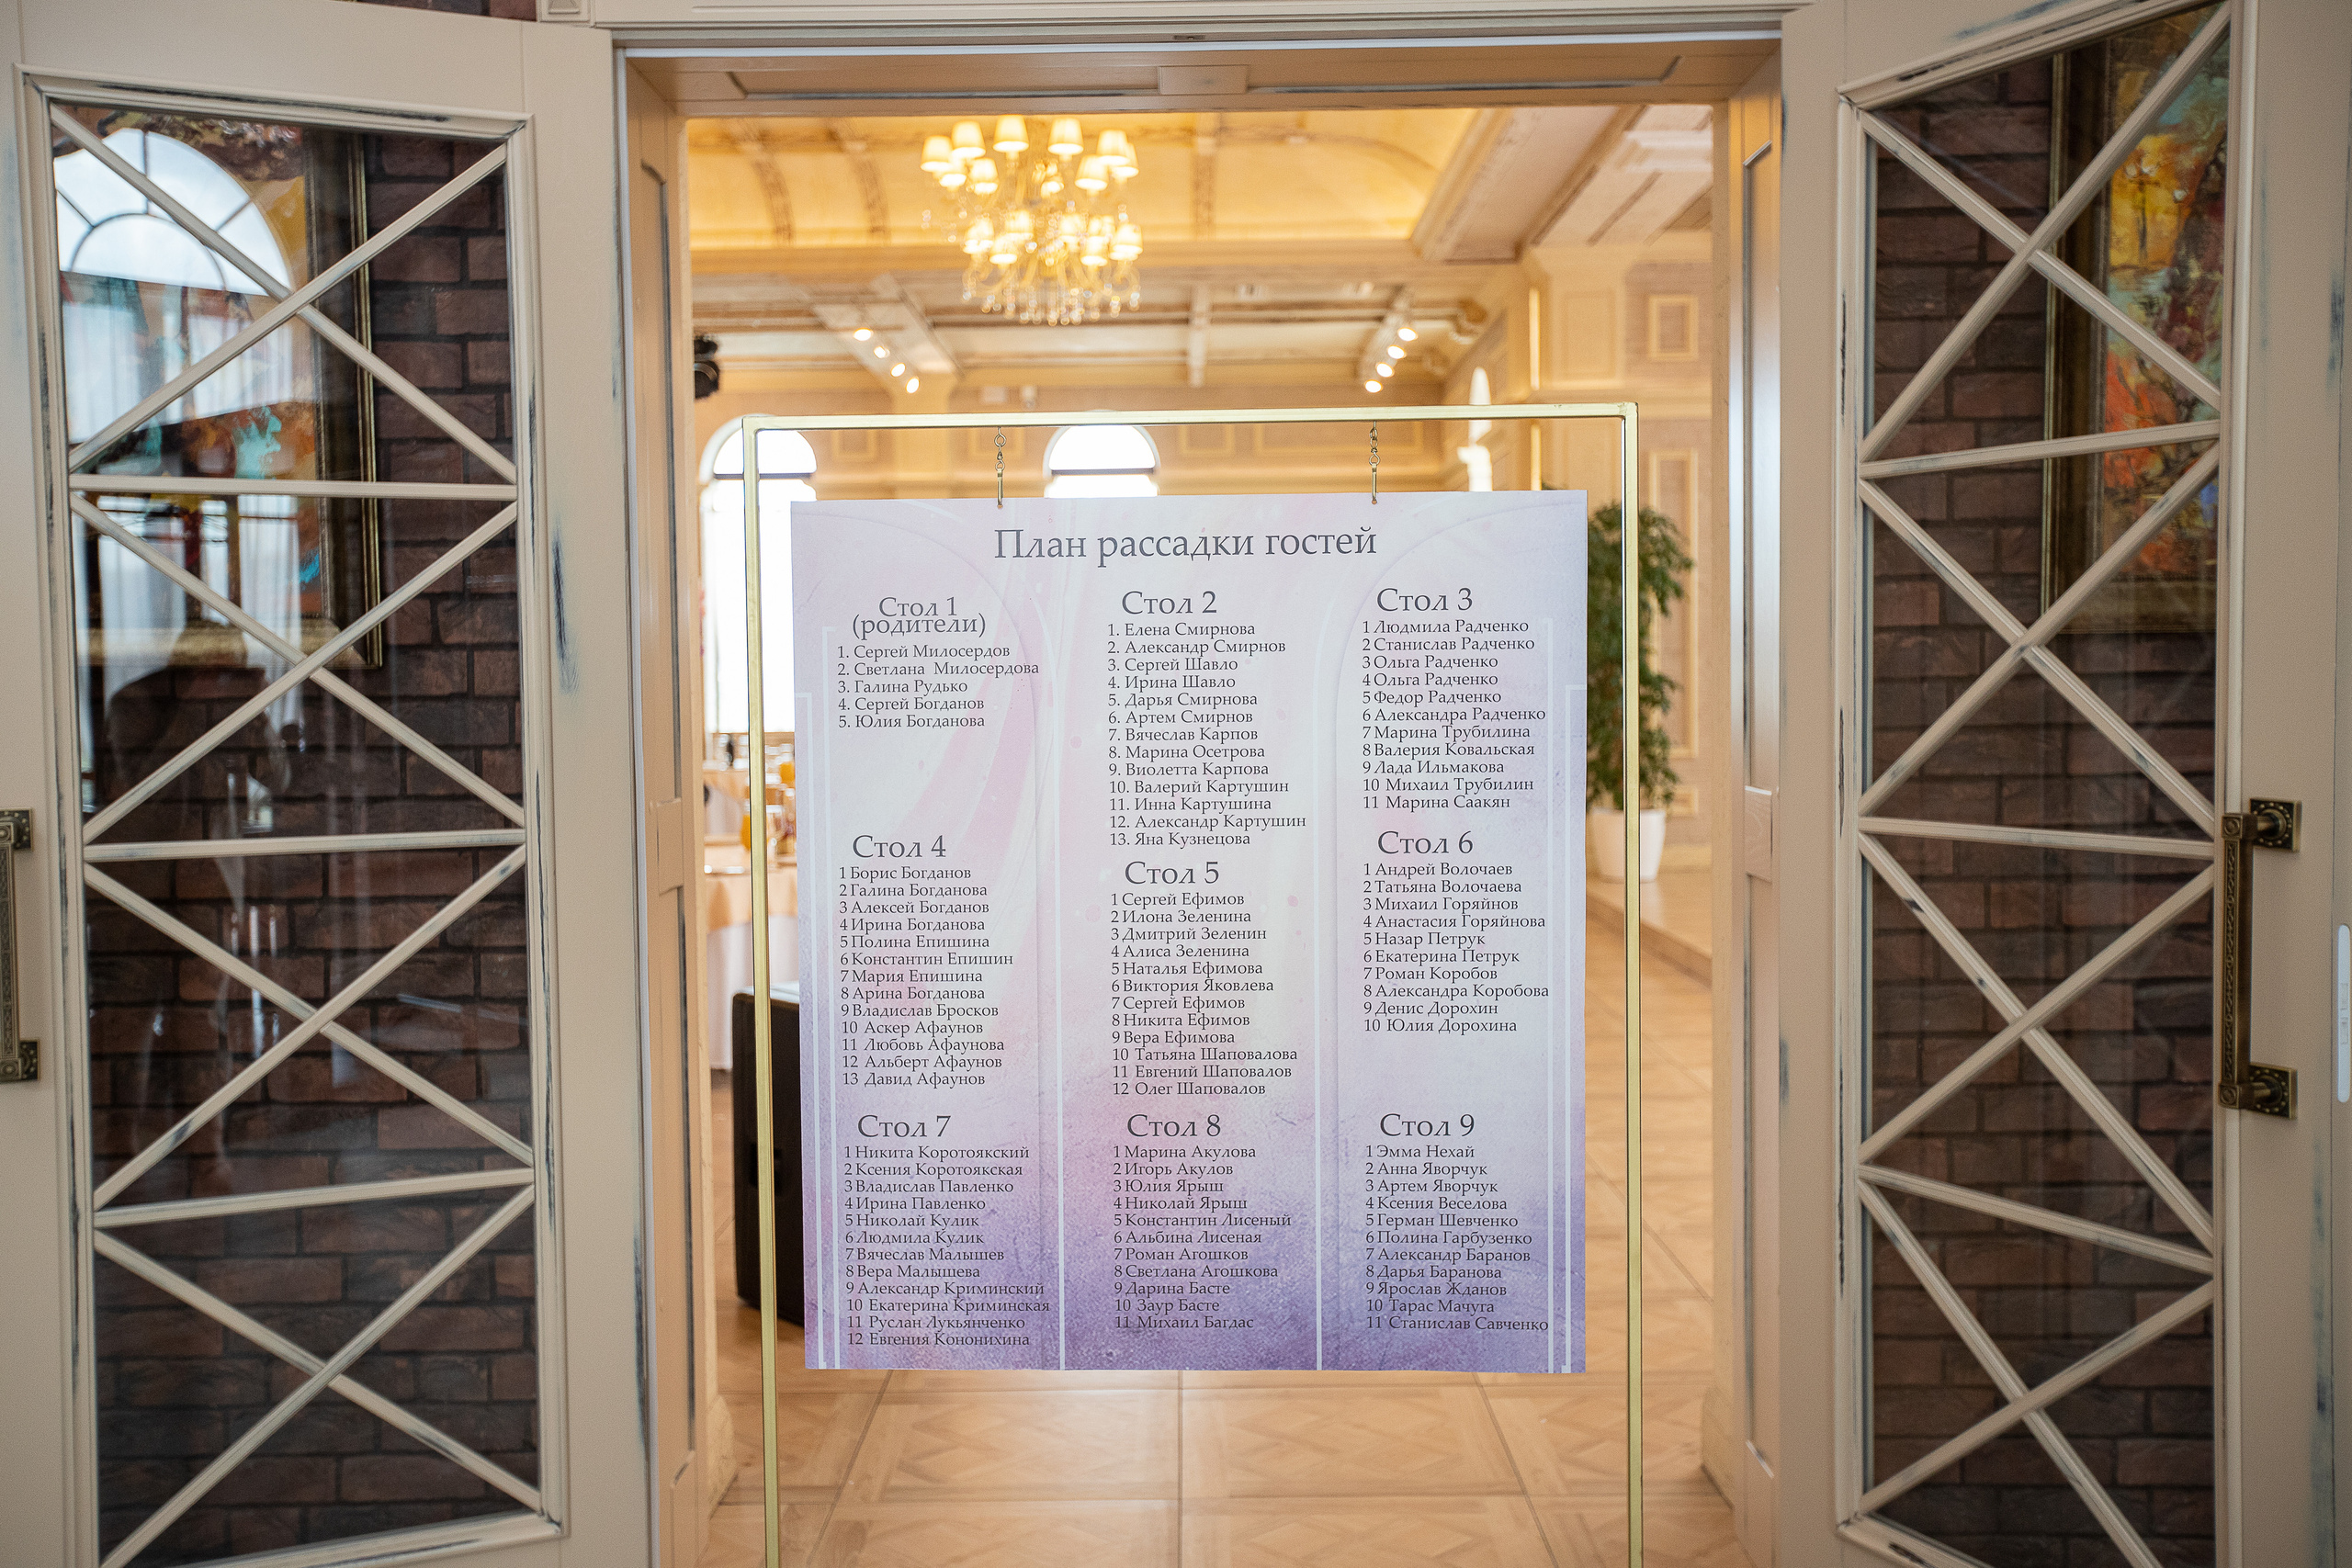 План рассадки гостей
Стол 1
(родители)
1. Сергей Милосердов
2. Светлана Милосердова
3. Галина Рудько
4. Сергей Богданов
5. Юлия Богданова
Стол 2
1. Елена Смирнова
2. Александр Смирнов
3. Сергей Шавло
4. Ирина Шавло
5. Дарья Смирнова
6. Артем Смирнов
7. Вячеслав Карпов
8. Марина Осетрова
9. Виолетта Карпова
10. Валерий Картушин
11. Инна Картушина
12. Александр Картушин
13. Яна Кузнецова
Стол 3
1 Людмила Радченко
2 Станислав Радченко
3 Ольга Радченко
4 Ольга Радченко
5 Федор Радченко
6 Александра Радченко
7 Марина Трубилина
8 Валерия Ковальская
9 Лада Ильмакова
10 Михаил Трубилин
11 Марина Саакян
Стол 4
1 Борис Богданов
2 Галина Богданова
3 Алексей Богданов
4 Ирина Богданова
5 Полина Епишина
6 Константин Епишин
7 Мария Епишина
8 Арина Богданова
9 Владислав Бросков
10 Аскер Афаунов
11 Любовь Афаунова
12 Альберт Афаунов
13 Давид Афаунов
Стол 5
1 Сергей Ефимов
2 Илона Зеленина
3 Дмитрий Зеленин
4 Алиса Зеленина
5 Наталья Ефимова
6 Виктория Яковлева
7 Сергей Ефимов
8 Никита Ефимов
9 Вера Ефимова
10 Татьяна Шаповалова
11 Евгений Шаповалов
12 Олег Шаповалов
Стол 6
1 Андрей Волочаев
2 Татьяна Волочаева
3 Михаил Горяйнов
4 Анастасия Горяйнова
5 Назар Петрук
6 Екатерина Петрук
7 Роман Коробов
8 Александра Коробова
9 Денис Дорохин
10 Юлия Дорохина
Стол 7
1 Никита Коротоякский
2 Ксения Коротоякская
3 Владислав Павленко
4 Ирина Павленко
5 Николай Кулик
6 Людмила Кулик
7 Вячеслав Малышев
8 Вера Малышева
9 Александр Криминский
10 Екатерина Криминская
11 Руслан Лукьянченко
12 Евгения Кононихина
Стол 8
1 Марина Акулова
2 Игорь Акулов
3 Юлия Ярыш
4 Николай Ярыш
5 Константин Лисеный
6 Альбина Лисеная
7 Роман Агошков
8 Светлана Агошкова
9 Дарина Басте
10 Заур Басте
11 Михаил Багдас
Стол 9
1 Эмма Нехай
2 Анна Яворчук
3 Артем Яворчук
4 Ксения Веселова
5 Герман Шевченко
6 Полина Гарбузенко
7 Александр Баранов
8 Дарья Баранова
9 Ярослав Жданов
10 Тарас Мачуга
11 Станислав Савченко